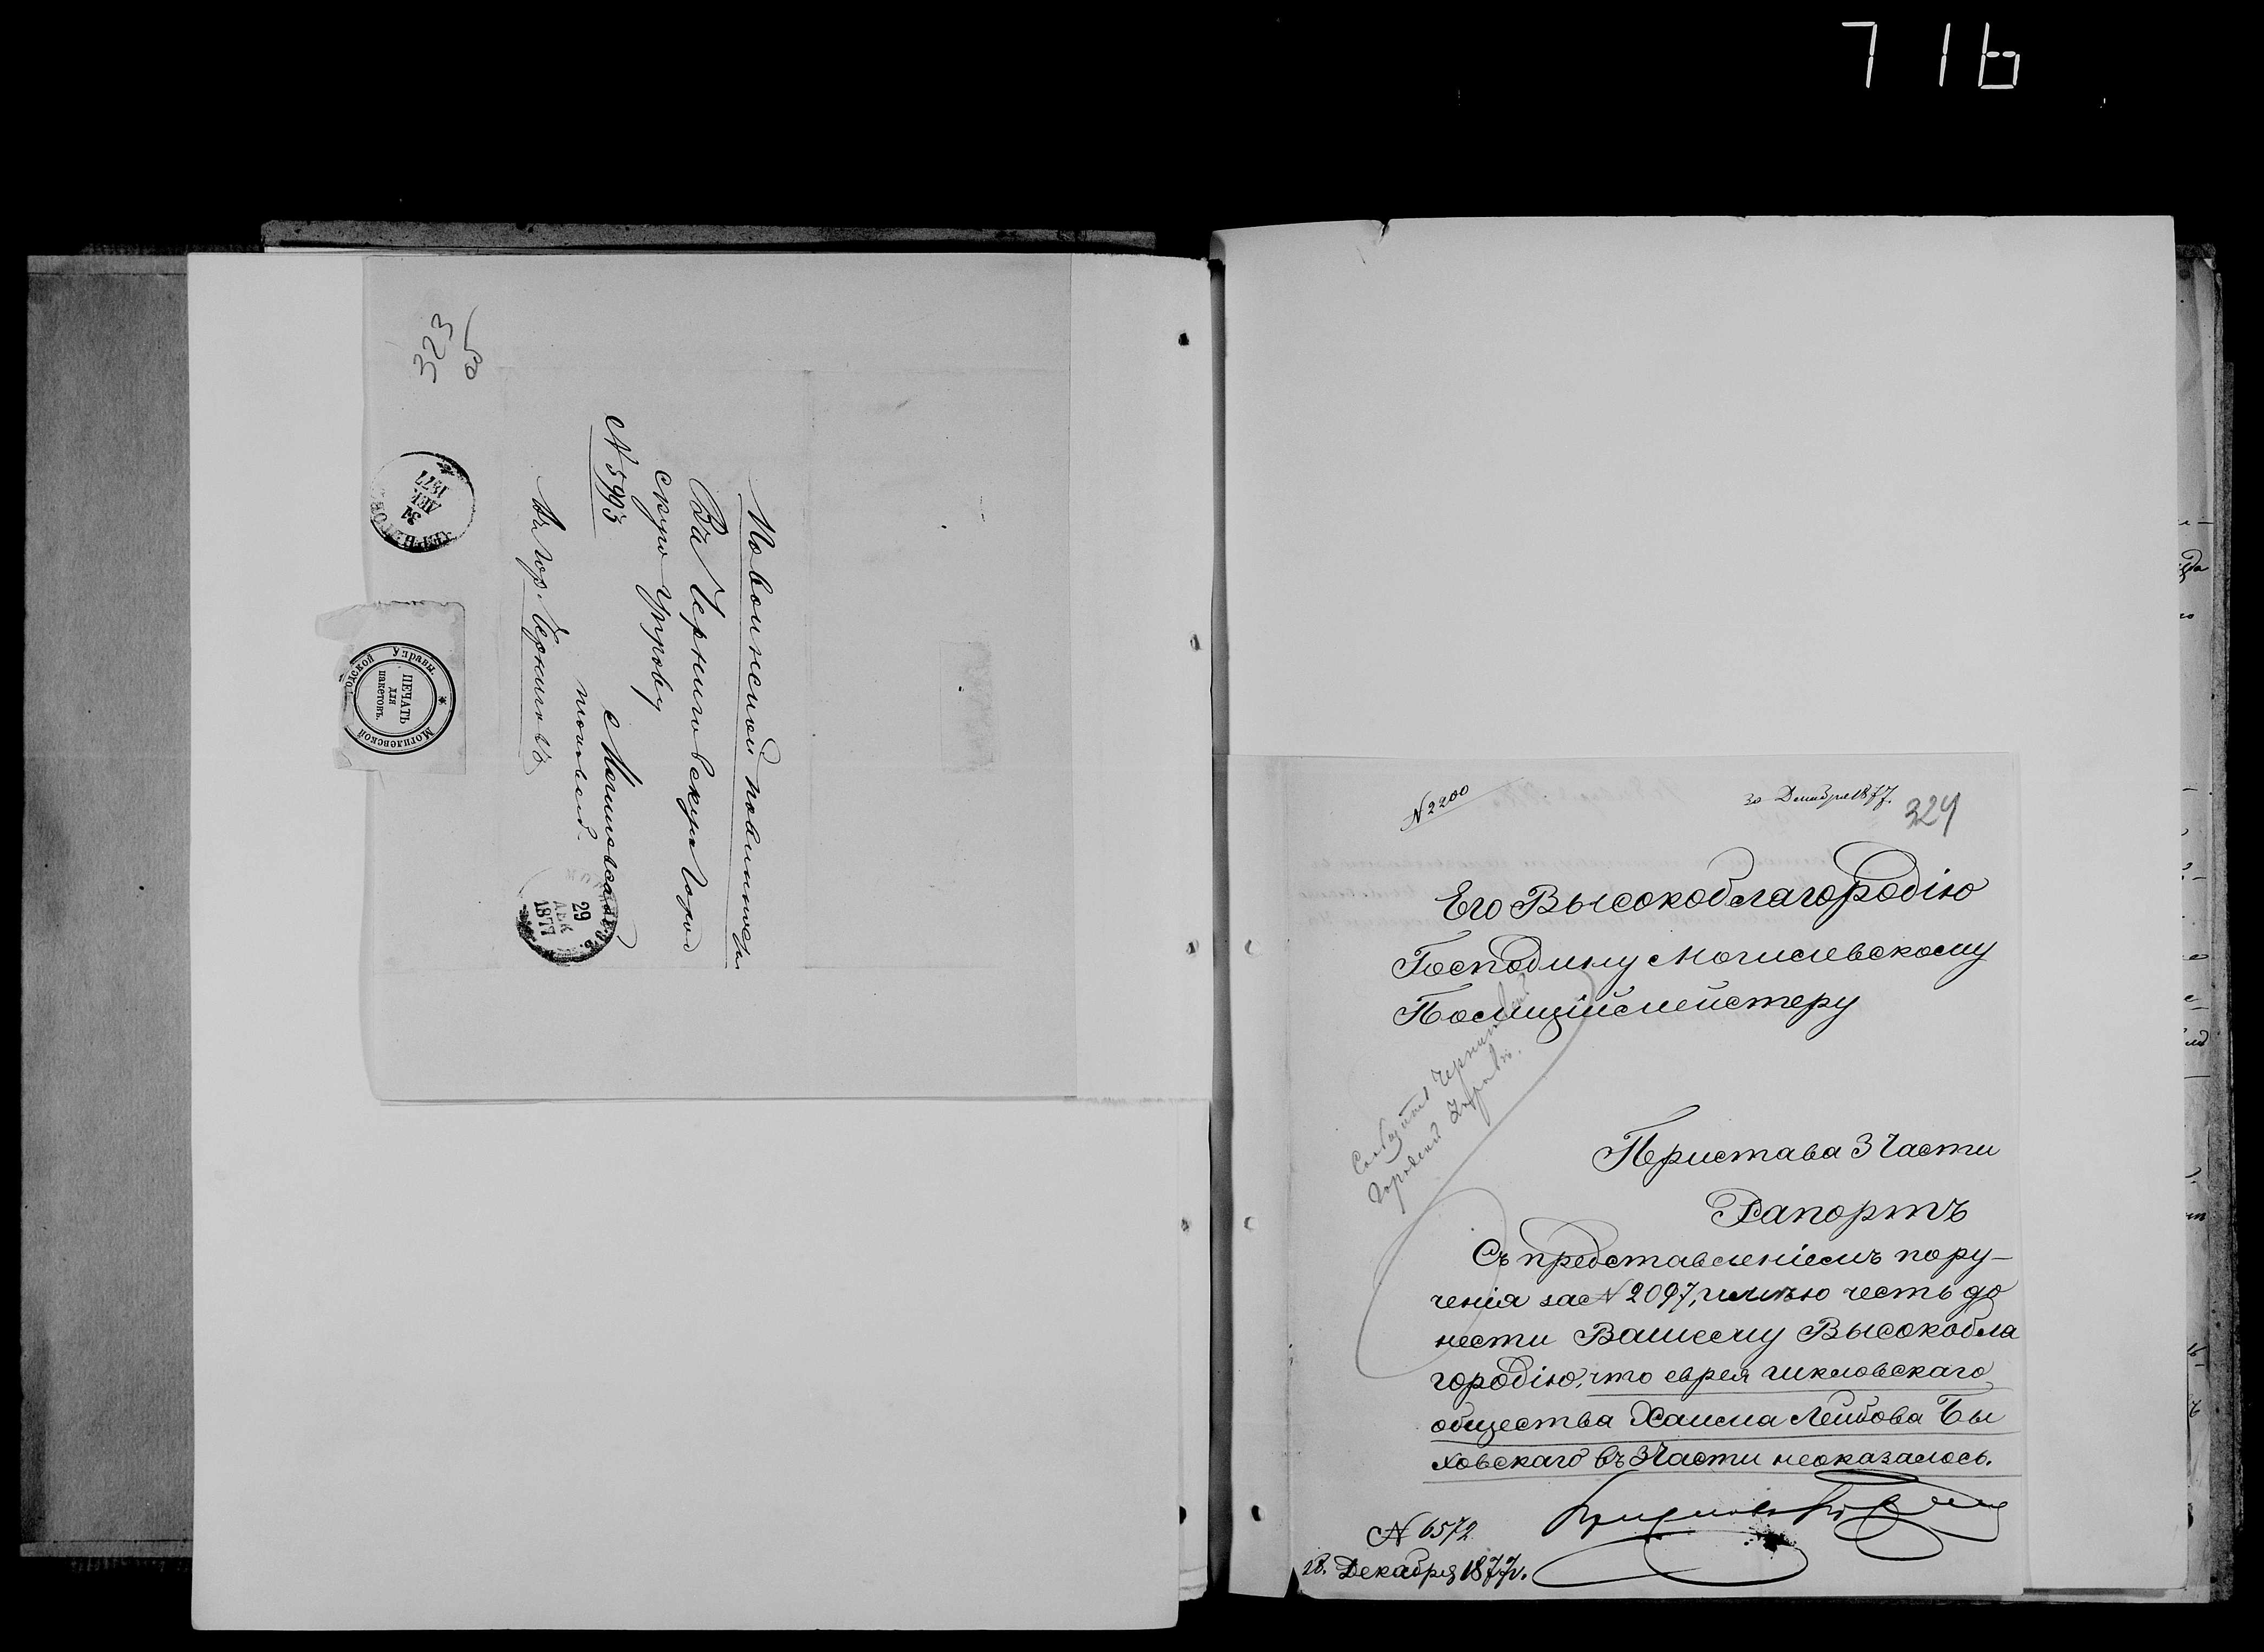 716
323
об
По воинской повинности
Въ Черниговскую Город
скую Управу
№ 5993
съ Могилевской
Въ гор. Черниговъ
31
ДЕК
1877
29
ДЕК
1877
Могилевской Городской Управы
ПЕЧАТЬ
для
пакетовъ.
№ 2200
30 Декабря 1877.
324
Его Высокоблагородію
Господину Могилевскому
Полиціймейстеру
Сообщить Чернигов
Городской Управѣ.
Пристава 3 Части
Рапортъ
Съ представленіемъ пору-
ченія за № 2097, имѣю честь до
нести Вашему Высокобла
городію, что еврея шкловскаго
общества Хаима Лейбова Бы
ховскаго въ 3 Части неоказалось.
№ 6572
28. Декабря 1877 г.